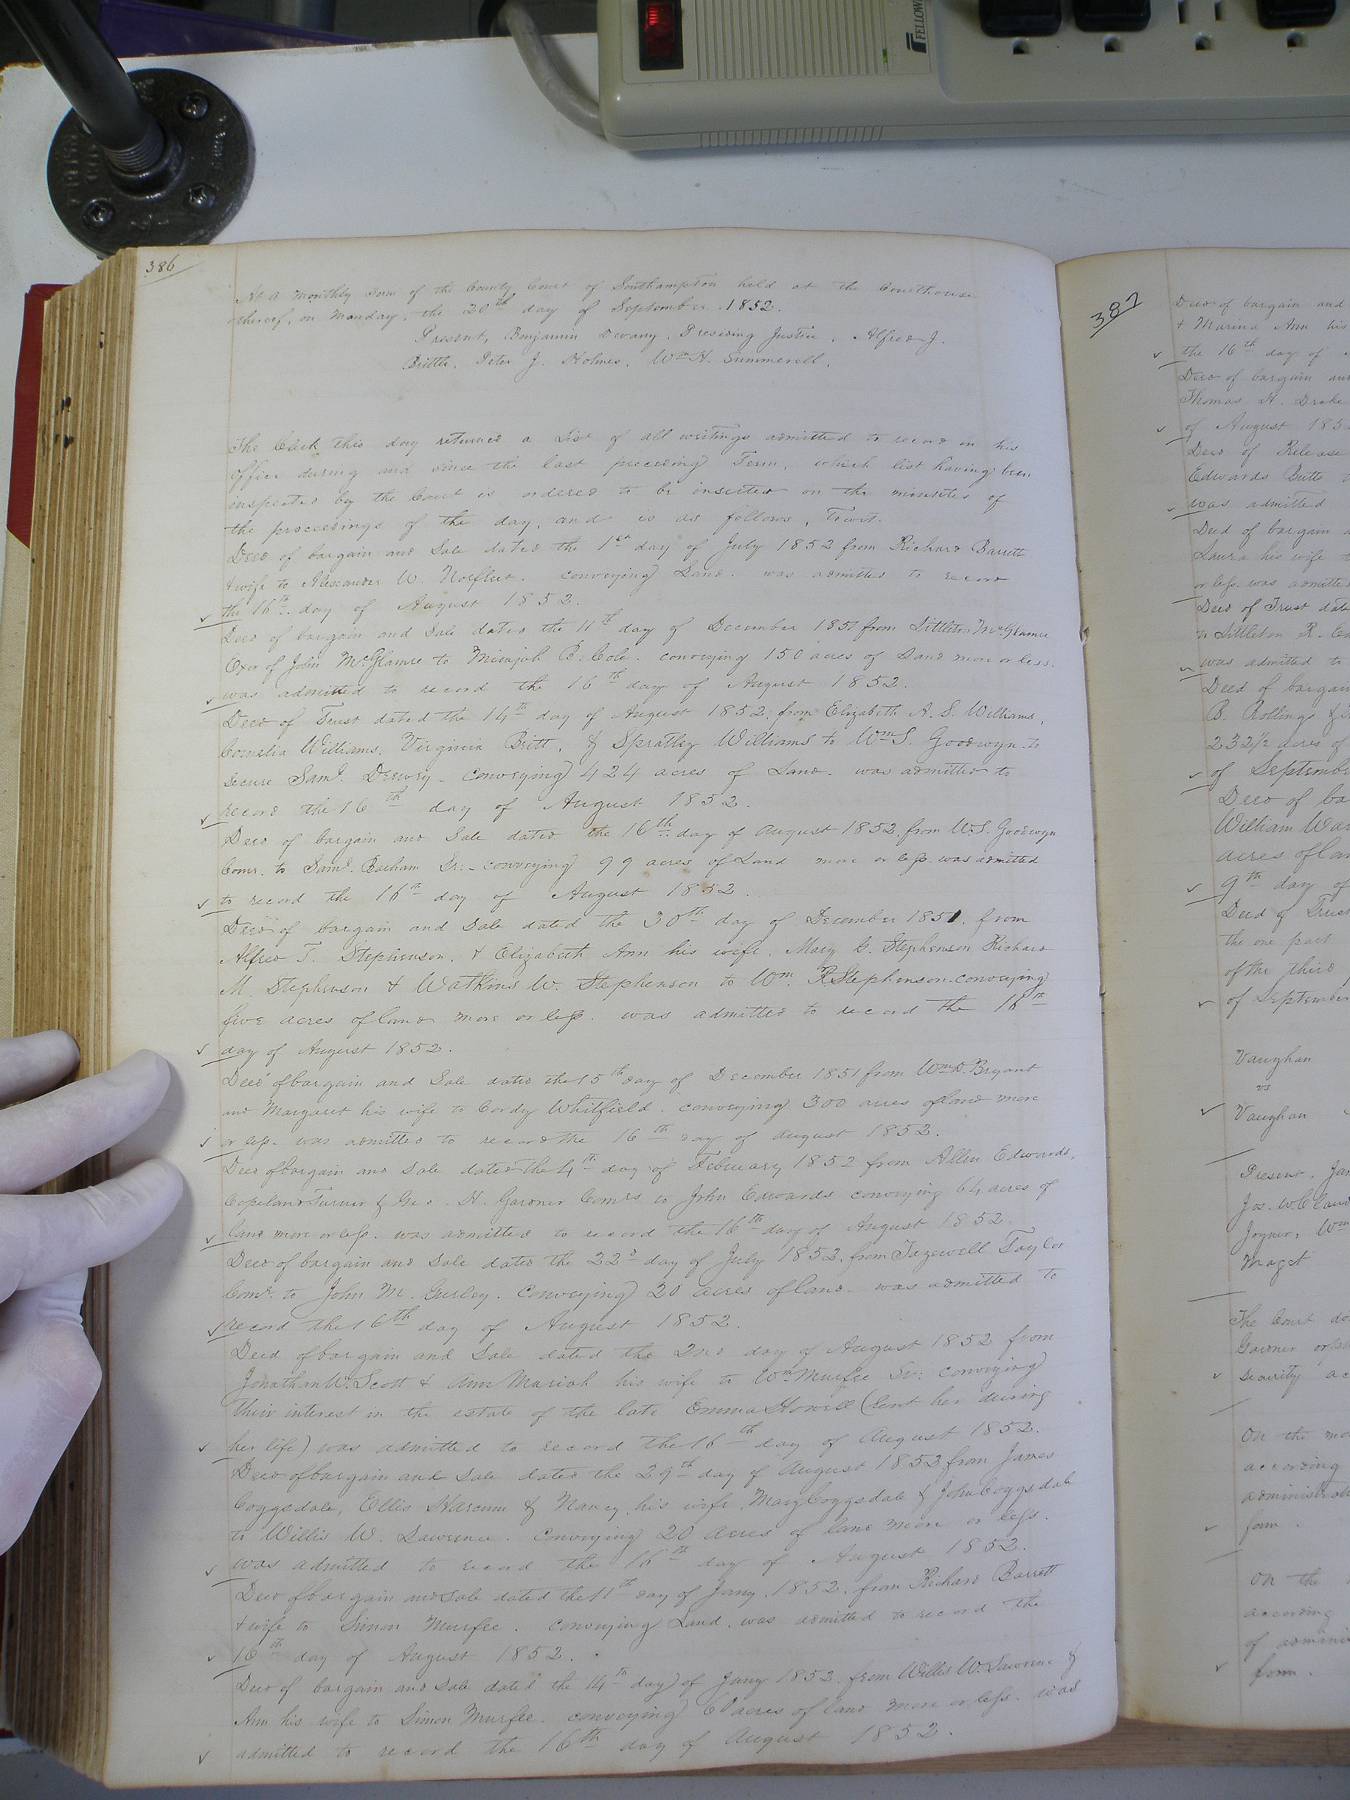 FELLOWE
386
At a monthly Term of the County Court of Southampton held at the Courthouse
thereof, on Monday, the 20th day of September 1852.
Present, Benjamin Devany, Presiding Justice, Alfred J.
Butts, Peter J. Holmes, Wm H. Summerell.
The Clerk this day returned a List of all writings admitted to record in his
office during and since the last preceeding Term, which list having been
inspected by the Court is ordered to be inserted on the minutes of
the proceedings of the day, and is as follows, Towit.
Deed of bargain and Sale dated the 1st day of July 1852 from Richard Barrett
& wife to Alexander W. Norfleet. conveying Land. was admitted to record
the 16th day of August 1852.
Deed of bargain and Sale dated the 11th day of December 1851 from Littleton McGlamre
Exor of John McGlamre to Micajah B. Cole. conveying 150 acres of Land more or less.
was admitted to record the 16th day of August 1852.
Deed of Trust dated the 14th day of August 1852. from Elizabeth A. S. Williams,
Cornelia Williams, Virginia Britt, & Spratley Williams to Wm S. Goodwyn to
secure Saml. Drewry. conveying 424 acres of Land. was admitted to
record the 16th day of August 1852.
Deed of bargain and Sale dated the 16th day of August 1852. from W. S. Goodwyn
Comr. to Saml. Barham Sr. conveying 99 acres of Land more or less. was admitted
to record the 16th day of August 1852.
Deed of bargain and Sale dated the 30th day of December 1851. from
Alfred T. Stephenson, & Elizabeth Ann his wife, Mary C. Stephenson Richard
M. Stephenson & Watkins W. Stephenson to Wm. R Stephenson conveying
five acres of land more or less. was admitted to record the 16th
day of August 1852.
Deed of bargain and Sale dated the 15th day of December 1851 from Wm D Bryant
and Margaret his wife to Cordy Whitfield. conveying 300 acres of land more
or less. was admitted to record the 16th day of August 1852.
Deed of bargain and Sale dated the 4th day of February 1852 from Allen Edwards,
Copeland Turner & Geo. H. Gardner Comrs to John Edwards conveying 64 acres of
land more or less. was admitted to record the 16th day of August 1852.
Deed of bargain and Sale dated the 22d day of July 1852. from Tazewell Taylor
Comr. to John M. Gurley. Conveying 20 acres of land. was admitted to
record the 16th day of August 1852.
Deed of bargain and Sale dated the 2nd day of August 1852 from
Jonathan W. Scott & Ann Mariah his wife to Wm Murfee Sr: conveying
their interest in the estate of the late Emma Howell (lent her during
her life) was admitted to record the 16th day of August 1852.
Deed of bargain and Sale dated the 29th day of August 1852 from James
Coggsdale, Ellis Harcum & Nancy his wife, Mary Coggsdale & John Coggsdale
to Willis W. Lawrence. Conveying 20 acres of land more or less.
was admitted to record the 16th day of August 1852.
Deed of bargain and Sale dated the 11th day of Jany. 1852. from Richard Barrett
& wife to Simon Murfee. conveying Land. was admitted to record the
16th day of August 1852.
Deed of bargain and Sale dated the 14th day of Jany 1852 from Willis W. Lawrence &
Ann his wife to Simon Murfee. conveying 60 acres of land more or less. was
admitted to record the 16th day of August 1852.
387
Deed of bargain and
& Marina Ann his
the 16th day of
Deed of bargain and
Thomas H. Drake
of August 185
Deed of Release
Edwards Butts
was admitted
Deed of bargain
Laura his wife
or less was admitted
Deed of Trust dat
to Littleton R.
was admitted to
Deed of bargain
B. Rollings &
232 1/2 acres of
of September
Deed of ba
William War
acres of lan
9th day of
Deed of Trust
the one part
of the third
of September
Vaughan
vs
Vaughan
Present. Ja
Jos. W Clau
Joyner, Wm
Maget
The Court do
Garner orph
security ac
On the mo
according
administrat
form.
On the
according
of admini
form.